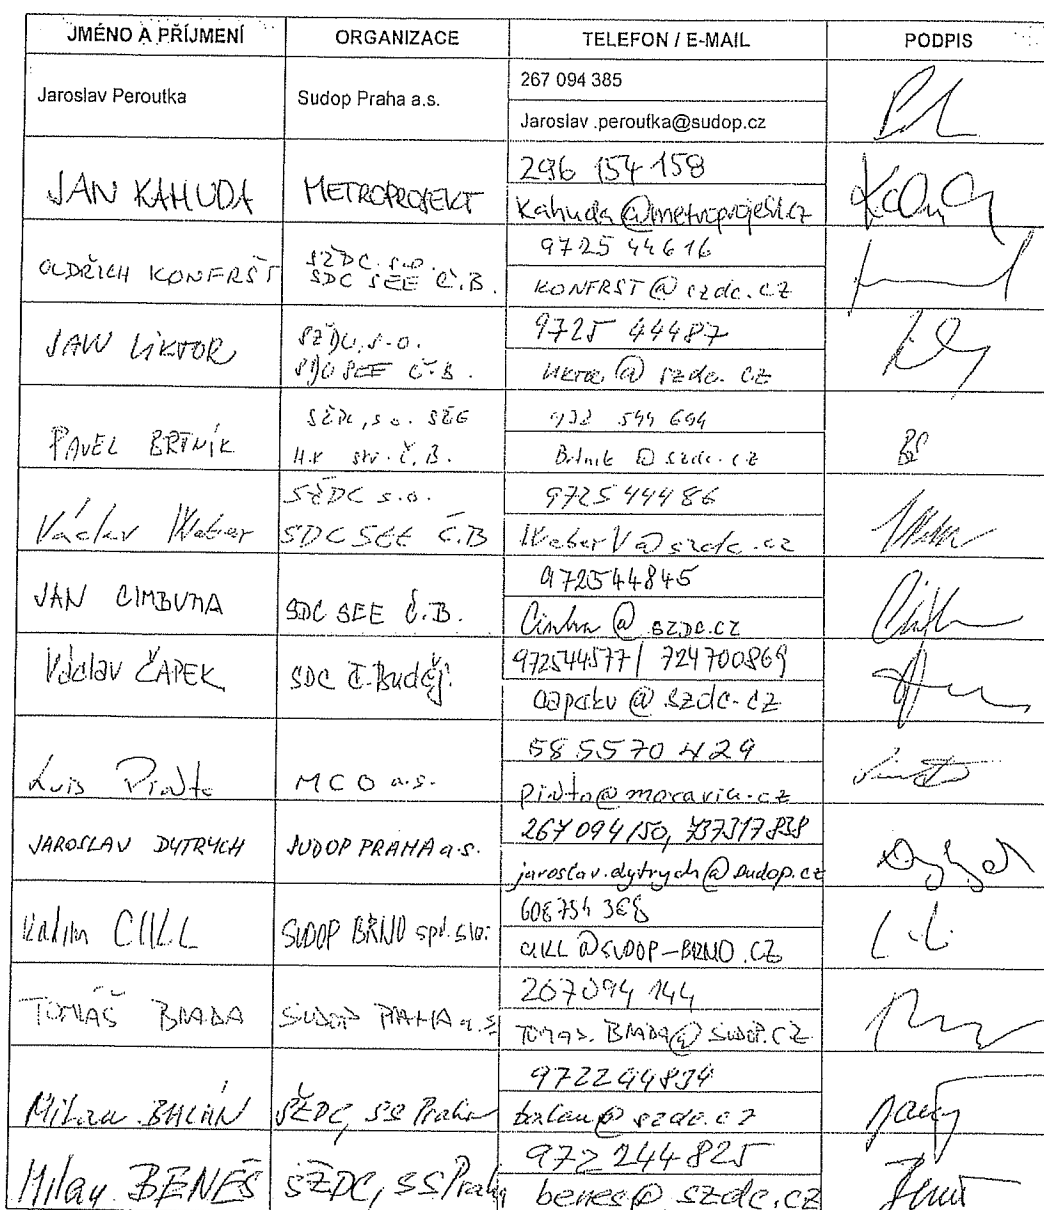 JMÉNO A PŘÍJMENÍ ORGANIZACE TELEFON / E-MAIL PODPIS
Jaroslav Peroutka Sudop Praha a.s.
267 094 385
Jaroslav .peroutka@sudop.cz
JAN KAHUDA METROPROJEKT
296 154 158
kahuda@metroprojekt.cz
OLDŘICH KONFRŠT
SŽDC s.o.
SDC SEE Č.B.
9725 44616
KONFRST@szdc.cz
JAN
SŽDC, s.o.
SDC SEE Č.B.
9725 44487
@szdc.cz
PAVEL BRTNÍK
SŽDC, s.o.
Č.B.
Brtnik@szdc.cz
Václav Weber
SŽDC s.o.
SDC SEE Č.B
9725 44486
WeberV@szdc.cz
JAN CIMBURA SDC SEE Č.B.
972544845
@szdc.cz
Václav ČAPEK SDC Č.Buděj.
972544577 / 724700869
capekv@szdc.cz
Luis Pinto MCO a.s.
585570429
pinto@moravia.cz
JAROSLAV DYTRYCH SUDOP PRAHA a.s.
267 094 150, 737317838
jaroslav.dytrych@sudop.cz
SUDOP BRNO spol. s r.o.
@SUDOP-BRNO.CZ
TOMÁŠ BRADA SUDOP PRAHA a.s.
267094 144
TOMAS.BRADA@SUDOP.CZ
Milan BALÁN SŽDC, SS Praha
972244834
balan@szdc.cz
Milan BENEŠ SŽDC, SS Praha
972 244 825
benes@szdc.cz